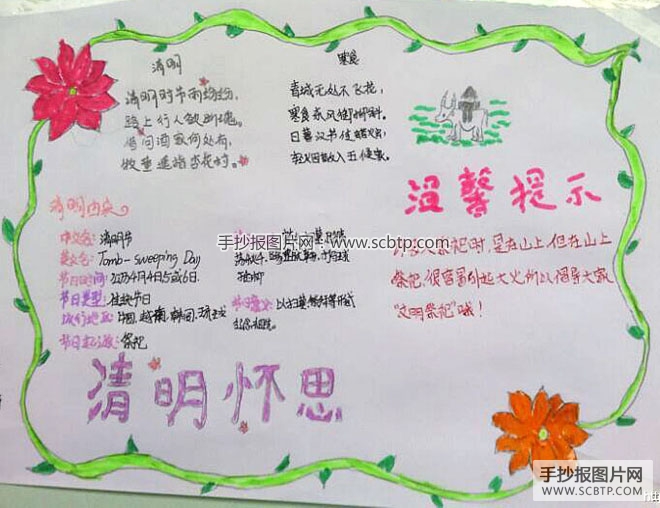 清明
清明时节雨纷纷，
路上行人欲断魂。
借问酒家何处有，
牧童遥指杏花村。
寒食
春城无处不飞花，
寒食东风御柳斜。
日暮汉节传蜡火，
轻烟散入五侯家。
温馨提示
祭祀时，是在山上，但在山上
祭祀，很容易引起大火，所以倡导大家
"文明祭祀"哦！
清明内容
中文名：清明节
英文名：Tomb-sweeping Day
节日时间：公历4月4日5或6日.
节日类型：传统节日
流行地区：中国,越南,韩国,
节日起源：祭祀
节日意义：以扫墓,祭祀等形式
纪念祖先.
清明怀思
手抄报图片网 www.scbtp.com
手抄报图片网
WWW.SCBTP.COM